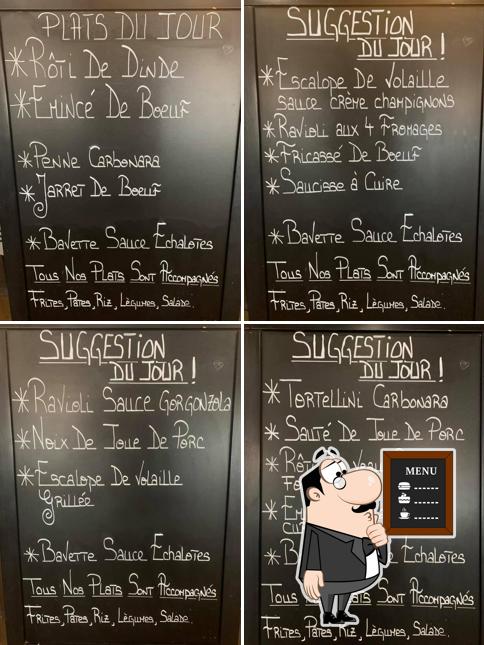 PLATS DU JOUR
*Rôti De Dinde
*Emincé De Boeuf
*Penne Carbonara
*Jarret De Boeuf
*Bavette Sauce Echalotes
Tous Nos Plats Sont Accompagnés
Frites, Pates, Riz, Légumes, Salade.
SUGGESTION
DU JOUR!
*Escalope De Volaille
sauce crème champignons
*Ravioli aux 4 Fromages
*Fricassé De Boeuf
*Saucisse à Cuire
*Bavette Sauce Echalotes
Tous Nos Plats Sont Accompagnés
Frites, Pates, Riz, Légumes, Salade.
SUGGESTION
DU JOUR!
*Ravioli Sauce Gorgonzola
*Noix De Joue De Porc
*Escalope De Volaille
Grillée
*Bavette Sauce Echalotes
Tous Nos Plats Sont Accompagnés
Frites, Pates, Riz, Légumes, Salade.
SUGGESTION
DU JOUR!
*Tortellini Carbonara
*Sauté De Joue De Porc
MENU
Echalotes
Tous Plats Sont Accompagnés
Frites, Pates, Riz, Légumes, Salade.